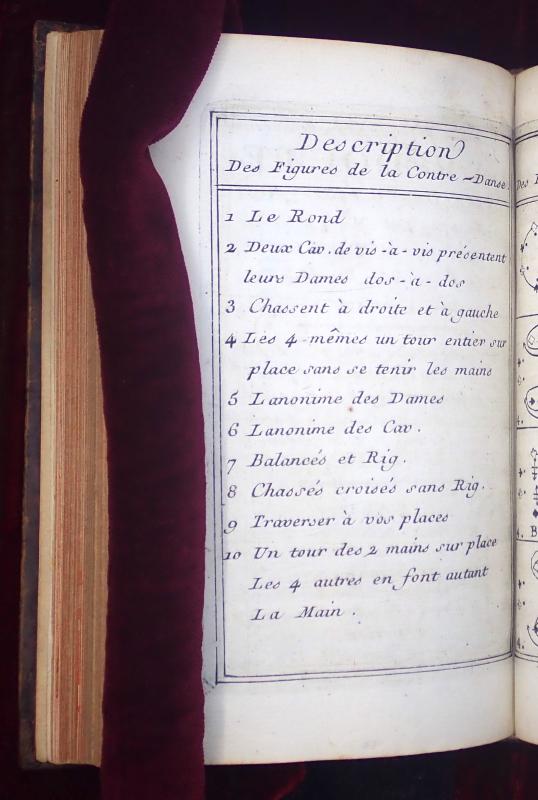 Description
Des Figures de la Contre-Danse.
1 Le Rond
2 Deux Cav. de vis-à-vis présentent
leurs Dames dos-à-dos
3 Chassent à droite et à gauche
4 Les 4 mêmes un tour entier sur
place sans se tenir les mains
5 Lanonime des Dames
6 Lanonime des Cav.
7 Balancés et Rig.
8 Chassés croisés sans Rig.
9 Traverser à vos places
10 Un tour des 2 mains sur place
Les 4 autres en font autant
La Main.